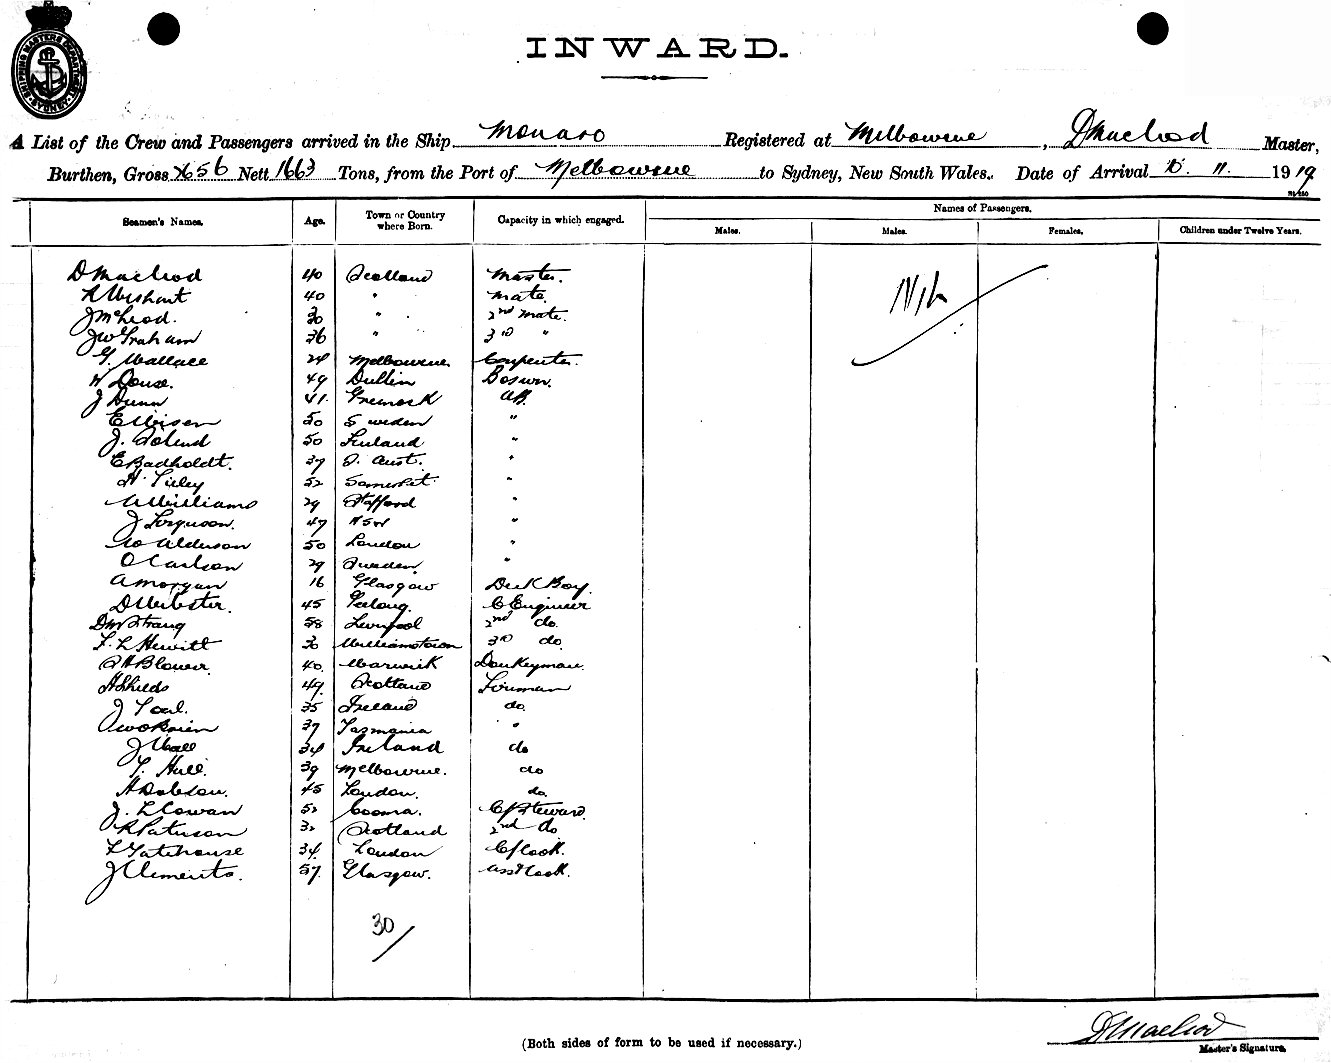 SHIPPING MASTERS DEPARTMENT SYDNEY
INWARD.
A List of the Crew and Passengers arrived in the Ship Monaro Registered at Melbourne, D Macleod Master,
Burthen, Gross 2656 Nett 1663 Tons, from the Port of Melbourne to Sydney, New South Wales. Date of Arrival 11. 1919
Seamen's Names. Age. Town or Country where Born. Capacity in which engaged. Names of Passengers.
Males. Males. Females. Children under Twelve Years.
D Macleod 40 Scotland Master. Nil
R Wishart 40 " Mate
J McLeod. 30 " 2nd Mate.
J W Graham 36 " 3rd "
G. Wallace 24 Melbourne Carpenter.
W Douse. 49 Dublin Boswn.
J Dunn 41. Greenock AB.
E 50 Sweden "
J. 50 Finland "
E Badholdt. 37 S. Aust. "
H. Tilley 52 Somerset "
W Williams 29 Stafford "
J Ferguson. 47 NSW "
W Alderson 50 London "
O Carlson 29 Sweden "
A Morgan 16 Glasgow Deck Boy.
D Webster. 45 Geelong. C Engineer
D M Strang 58 Liverpool 2nd do.
F. L Hewitt 30 Williamstown 3rd do.
A H Blower 40. Warwick Donkeyman.
H Shields 49. Scotland Fireman
J Toal. 35 Ireland do.
W O Brien 37 Tasmania "
J Wall 34 Ireland do
T. Hull. 39 Melbourne. do
H Dobson. 45 London. do.
J. L Cowan 52 Cooma. Cf Steward.
R Paterson 32 Scotland 2nd do
F Gatehouse 34. London Cf Cook.
J Clements. 57. Glasgow. Asst Cook.
30/
D Macleod
Master's Signature.
(Both sides of form to be used if necessary.)